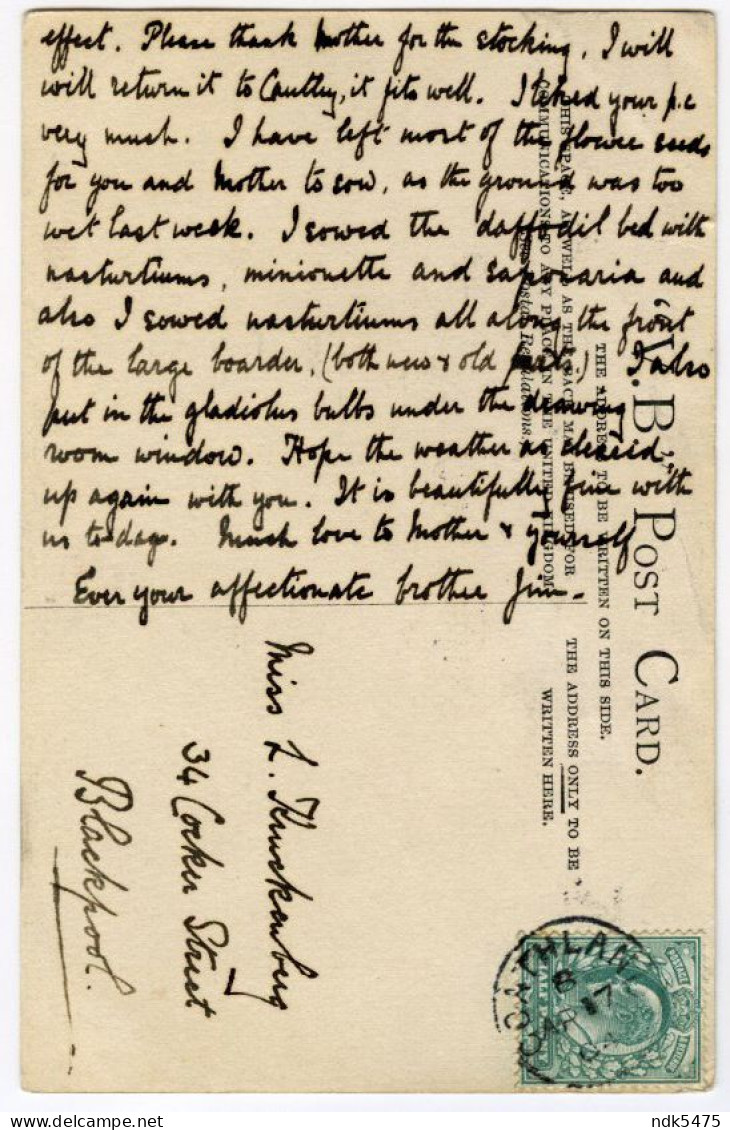 effect. Please thank Mother for the stocking, I will
will return it to Cautley, it fits well. I liked your p.c
very much. I have left most of the flower seeds
for you and Mother to sow, as the ground was too
wet last week. I sowed the daffodil bed with
nasturtiums, minionette and saponaria and
also I sowed nasturtiums all along the front
of the large boarder, (both new & old parts.) I also
put in the gladiolus bulbs under the drawing
room window. Hope the weather as cleared
up again with you. It is beautifully fine with
us to-day. Much love to Mother & yourself
Ever your affectionate brother Jim.
Miss L. Kruskenberg
34 Cocker Street
Blackpool.
POST CARD.
THE ADDRESS TO BE WRITTEN ON THIS SIDE.
THIS SPACE, AS WELL AS THE BACK, MAY BE USED FOR
COMMUNICATIONS TO ANY PLACE IN THE UNITED KINGDOM
Postal Regulations
THE ADDRESS ONLY TO BE
WRITTEN HERE.
AP 17
POSTAGE
ndk5475